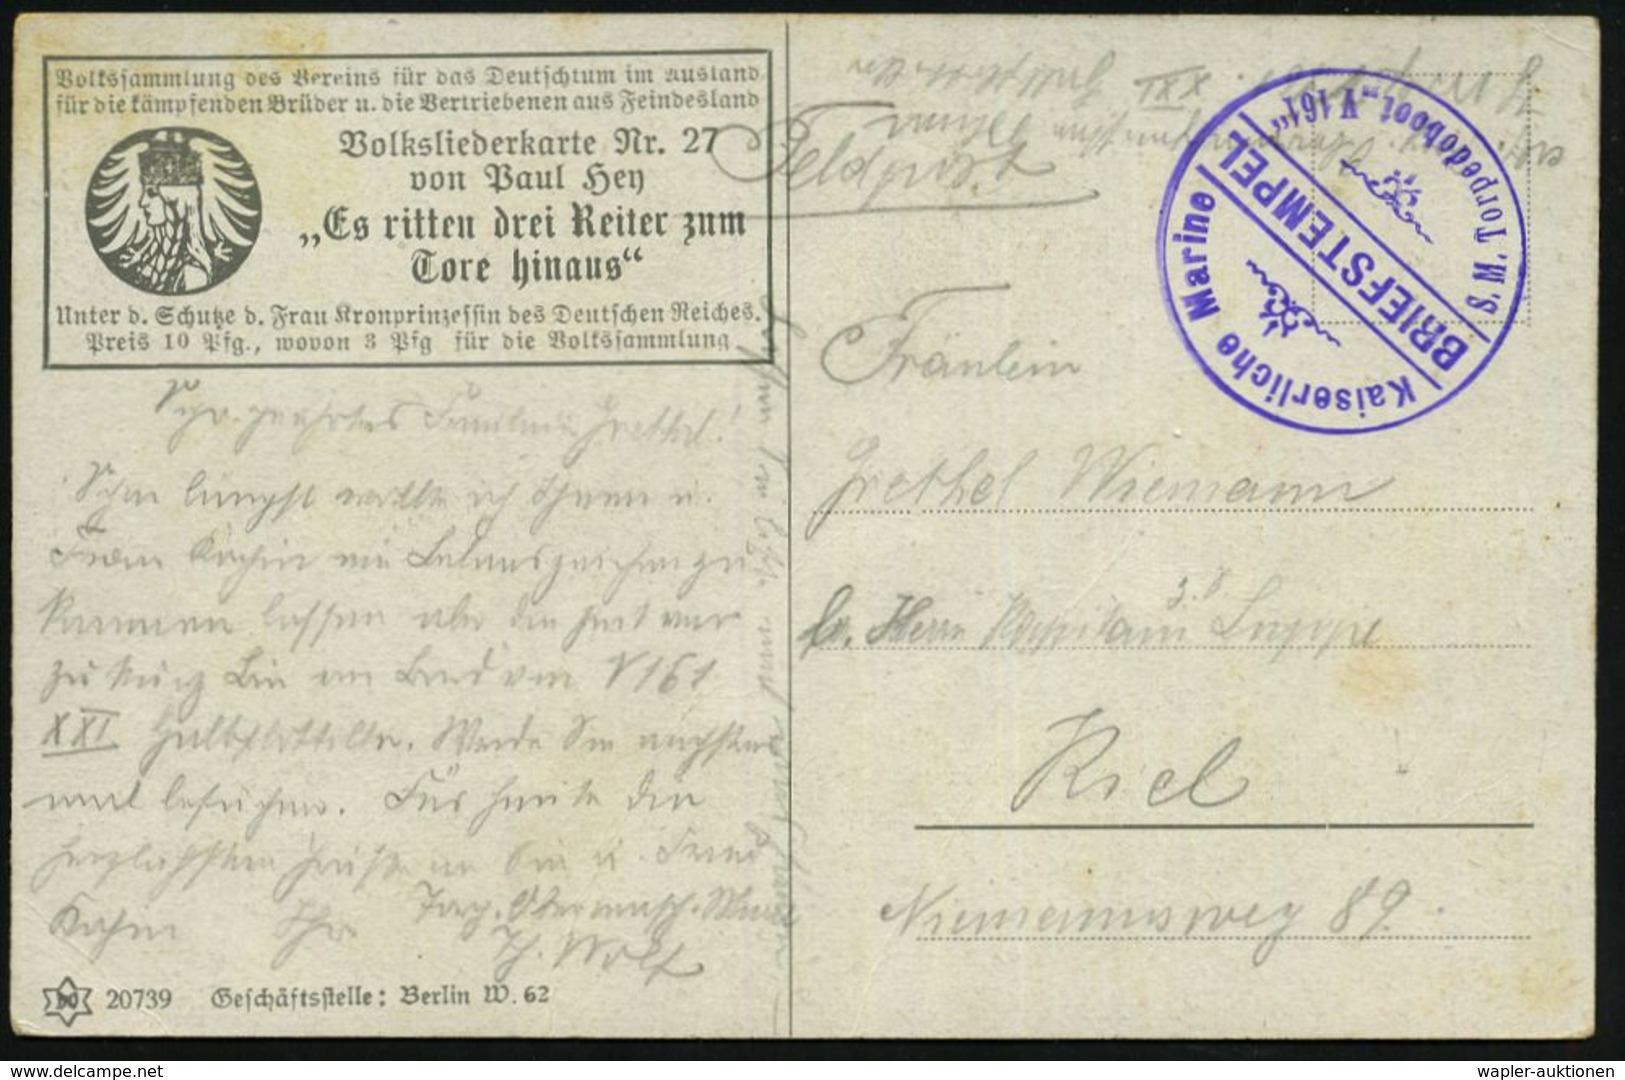 Volkssammlung des Vereins für das Deutschtum im Ausland
für die kämpfenden Brüder u. die Vertriebenen aus Feindesland
Volksliederkarte Nr. 27
von Paul Hey
„Es ritten drei Reiter zum
Tore hinaus“
Unter d. Schutze d. Frau Kronprinzessin des Deutschen Reiches.
Preis 10 Pfg., wovon 3 Pfg für die Volkssammlung
Sehr geehrtes Fräulein Grethel!
Schon längst wollte ich Ihnen u.
Frau ein Lebenszeichen zu
kommen lassen aber die Zeit war
zu kurz. Bin an Bord von V161
XXI Halbflottille. Werde Sie nächstes
mal besuchen. Für heute die
herzlichsten Grüße an Sie u. Frau
Ihr
Wolf
20739 Geschäftsstelle: Berlin W. 62
Feldpost
XXI
Kaiserliche Marine
BRIEFSTEMPEL
S.M. Torpedoboot „V 161“
Fräulein
Grethel Wiemann
br. Herrn Kapitain z.S Luppe
Kiel
Niemannsweg 89.
wapler-auktionen.com
wapler-auktionen